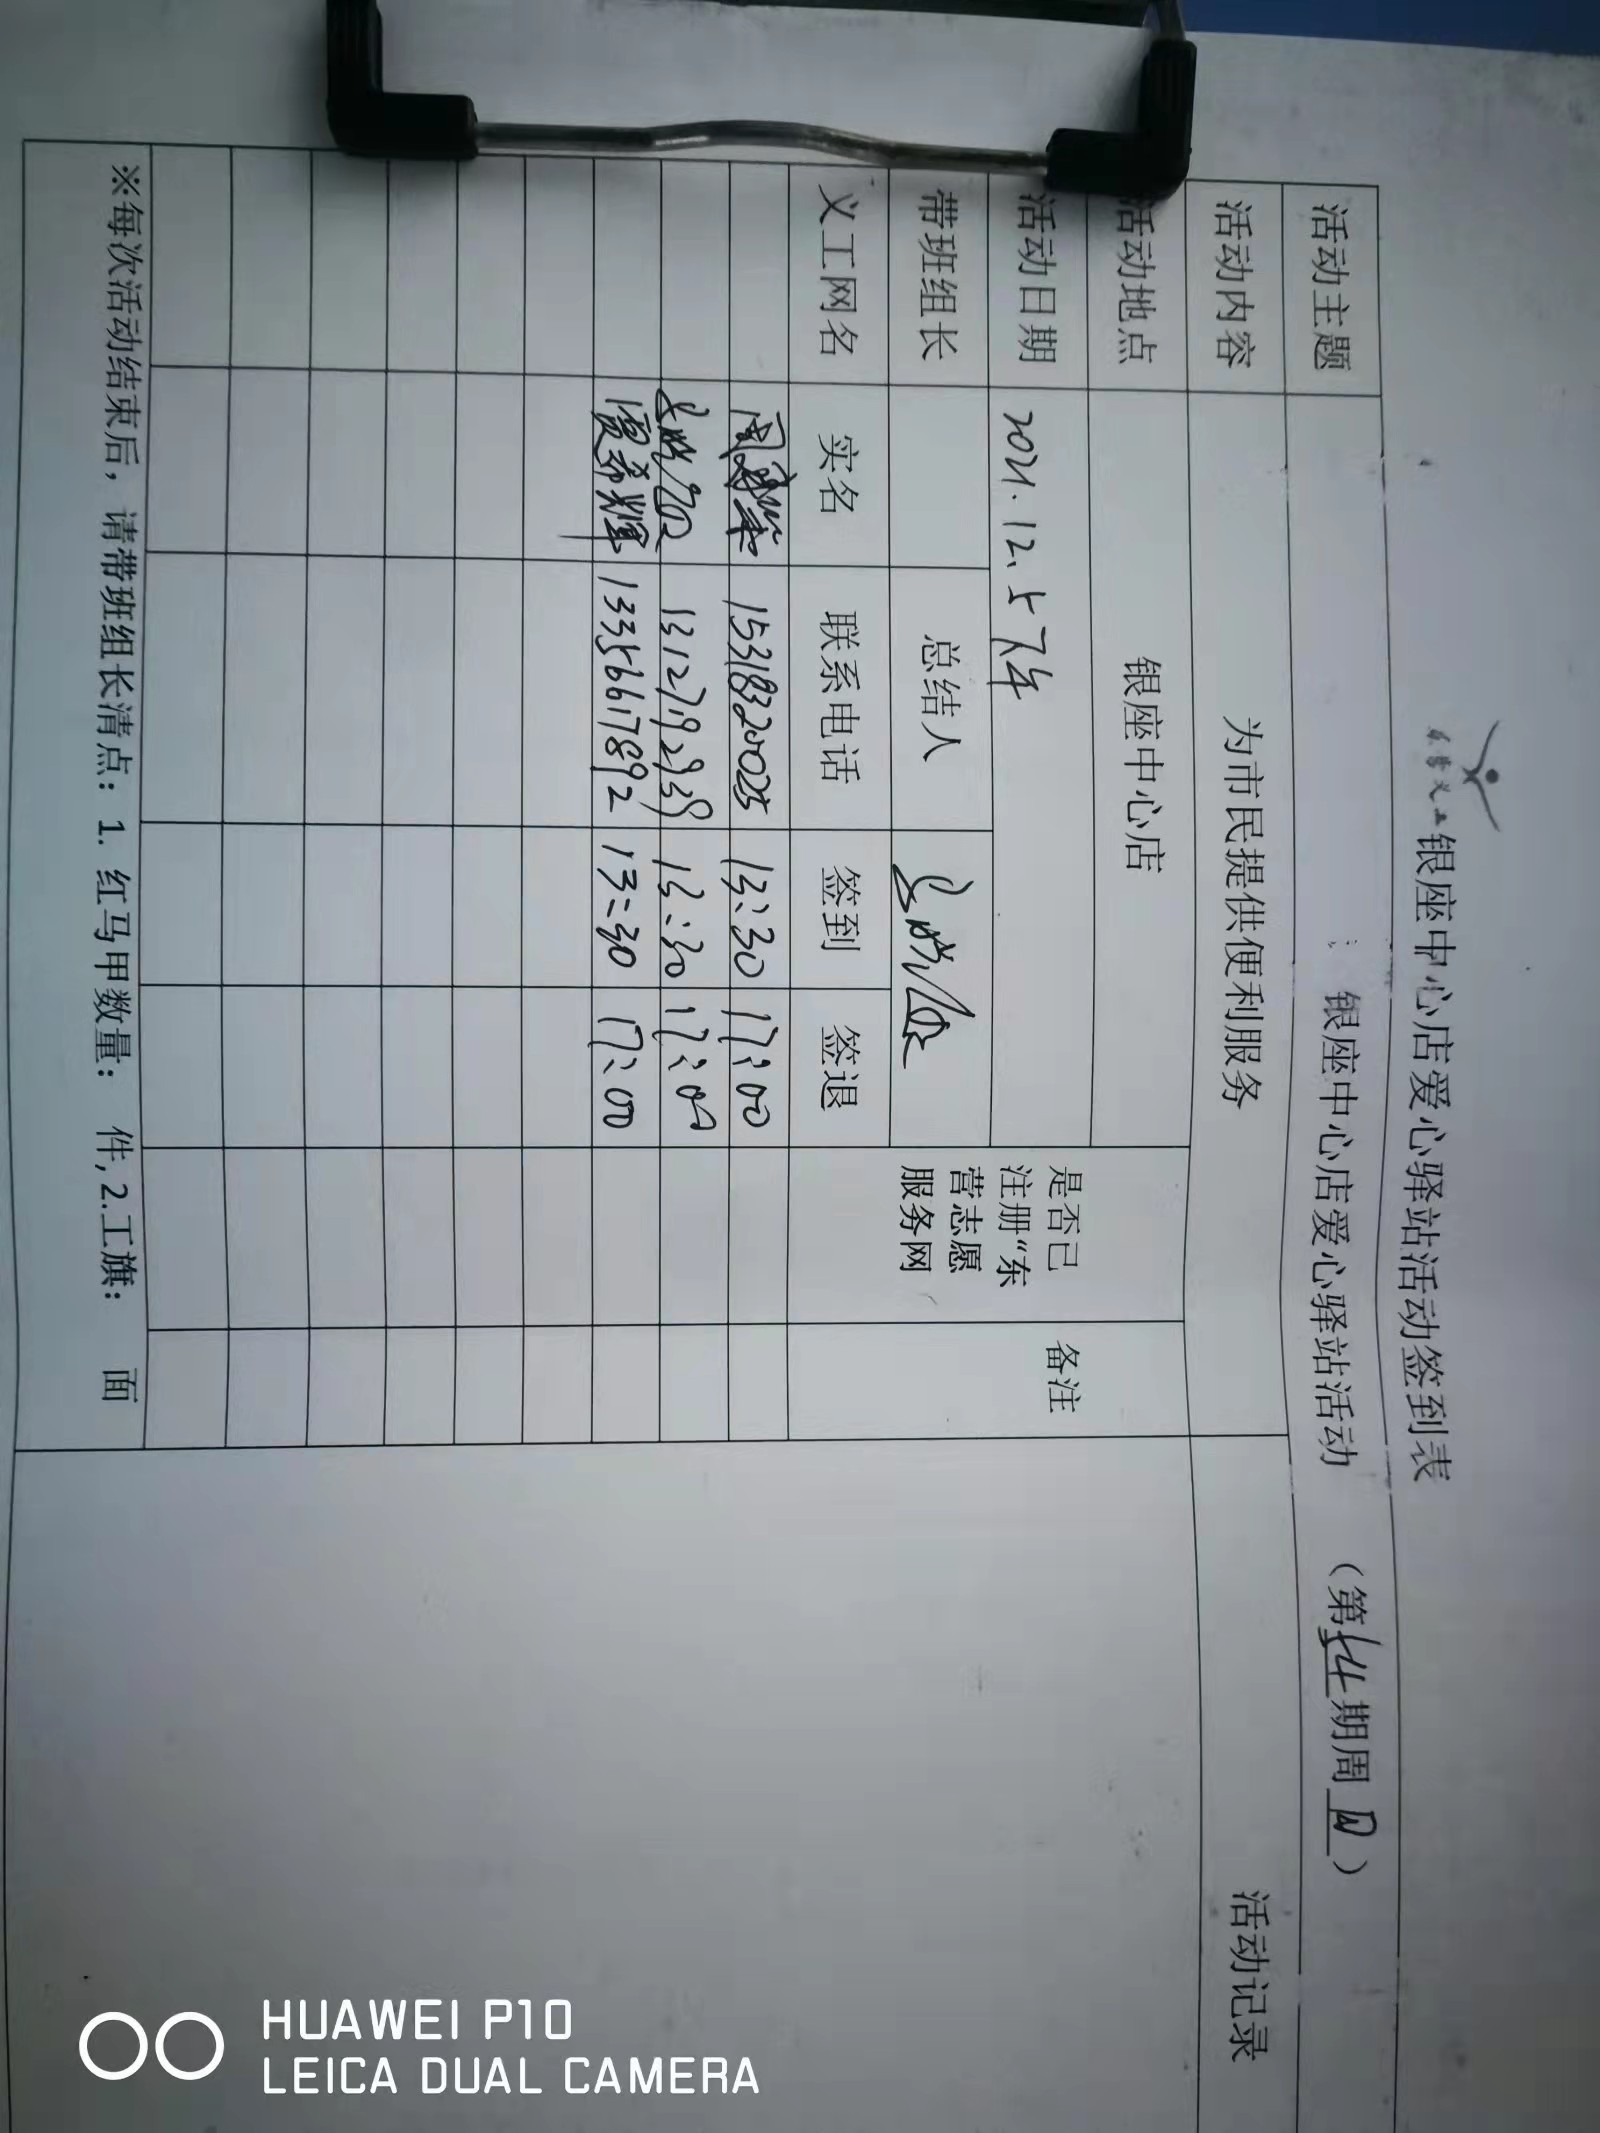 东营义工
银座中心店爱心驿站活动签到表
活动主题 银座中心店爱心驿站活动 （第54期周四）
活动内容 为市民提供便利服务 活动记录
活动地点 银座中心店 是否已注册“东营志愿服务网 备注
活动日期 2021.12.5 下午
带班组长 总结人
义工网名 实名 联系电话 签到 签退
15318320025 13:30 17:00
13127192939 13:30 17:00
贾希辉 13356617892 13:30 17:00
※每次活动结束后，请带班组长清点：1. 红马甲数量： 件,2.工旗： 面
HUAWEI P10
LEICA DUAL CAMERA